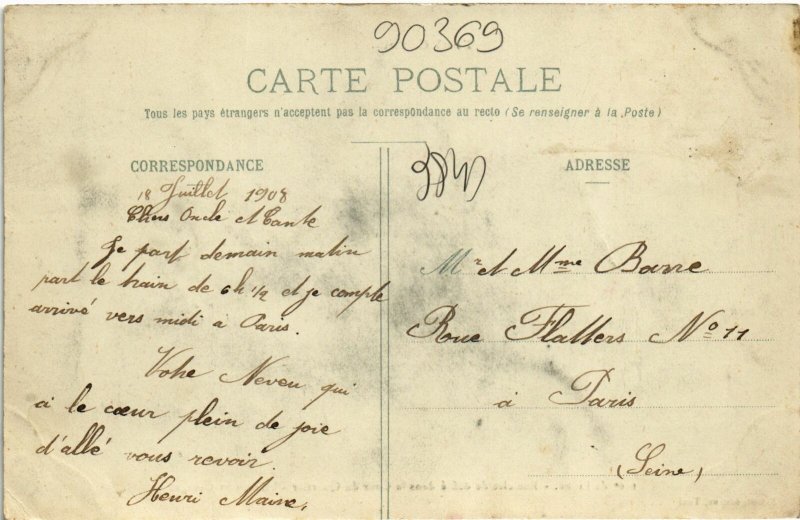 90369
CARTE POSTALE
Tous les pays étrangers n'acceptent pas la correspondance au recto (Se renseigner à la Poste)
CORRESPONDANCE
18 Juillet 1908
Chers Oncle et Tante
Je part demain matin
part le train de 6h 1/2 et je compte
arrivé vers midi à Paris.
Votre Neveu qui
a le cœur plein de joie
d'allé vous revoir.
Henri
ADRESSE
Mr et Mme Barre
Rue Flatters No 11
à Paris
(Seine)